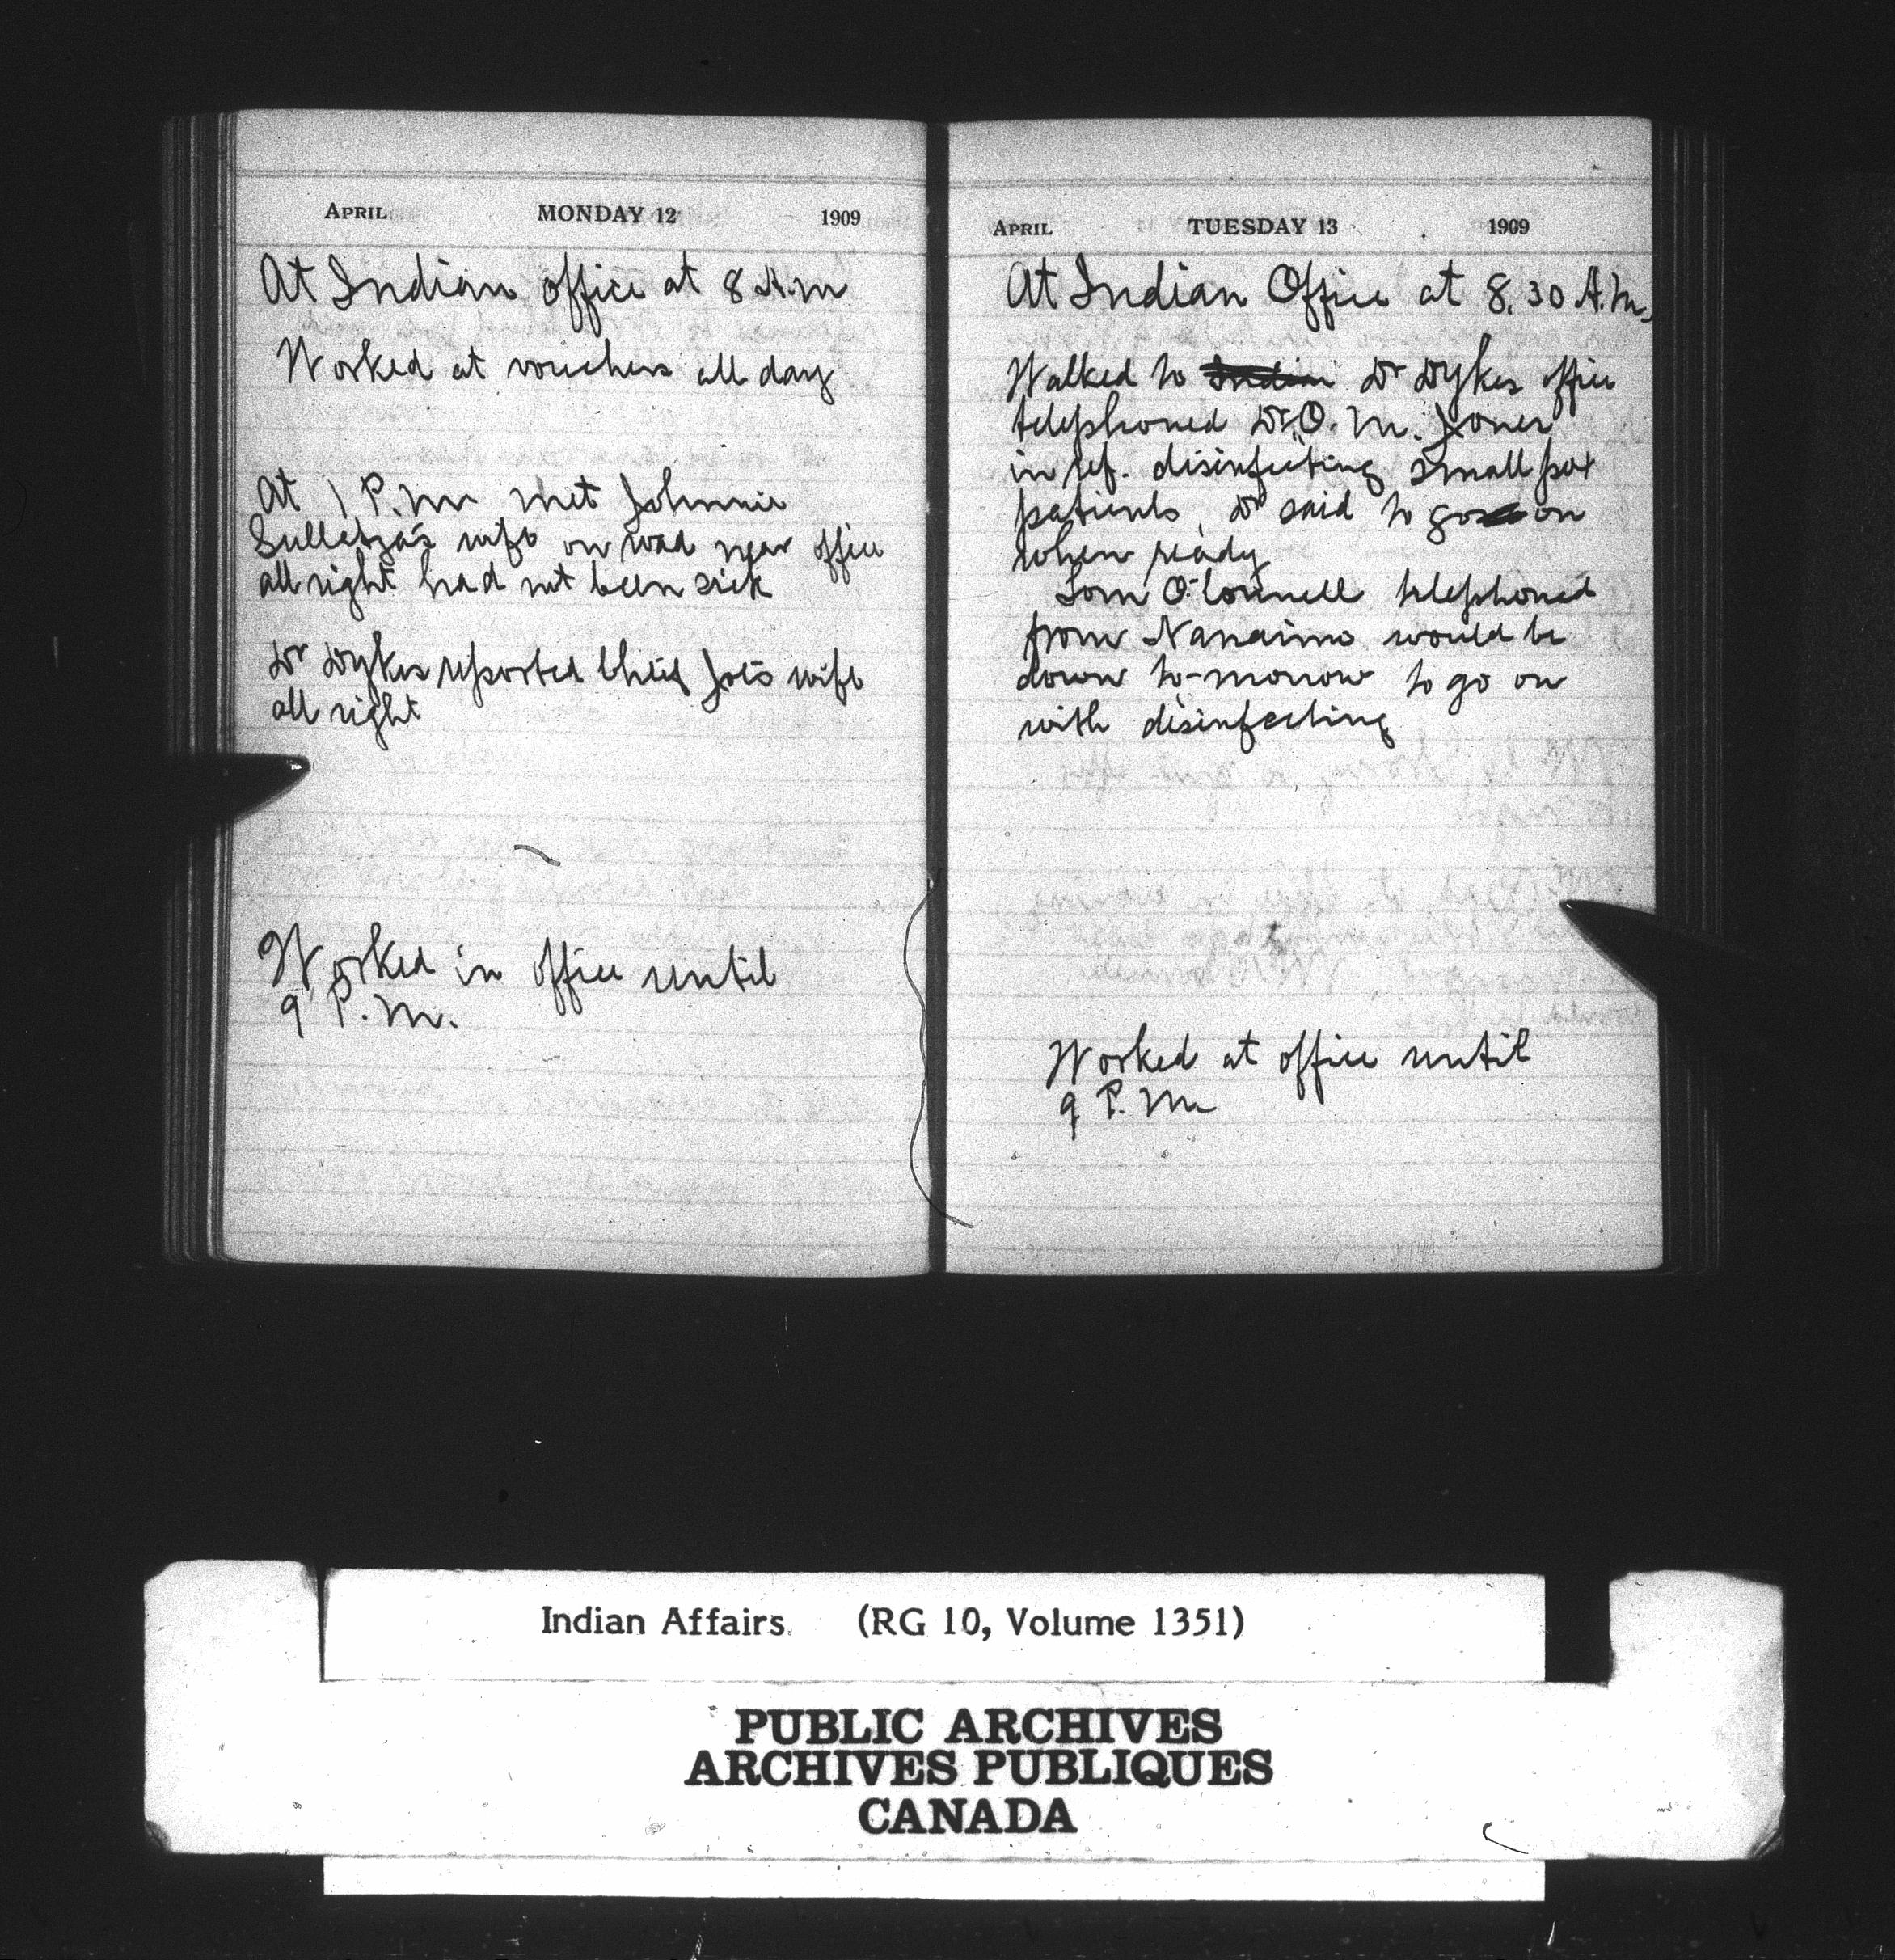 APRIL MONDAY 12 1909
At Indian office at 8 A.m
Worked at vouchers all day
At 1 P.m met Johnnie
wife on road near office
all right had not been sick
Dr Dykes reported Chief Joe's wife
all right
Worked in office until
9 P.M.
APRIL TUESDAY 13 1909
At Indian Office at 8.30 A.m.
Walked to Indian Dr Dykes office
telephoned Dr. O. M. Jones
in ref. disinfecting small pox
patients, Dr said to go on
when ready
Tom O'Connell telephoned
from Nanaimo would be
down to-morrow to go on
with disinfecting
Worked at office until
9 P.M
Indian Affairs. (RG 10, Volume 1351)
PUBLIC ARCHIVES
ARCHIVES PUBLIQUES
CANADA